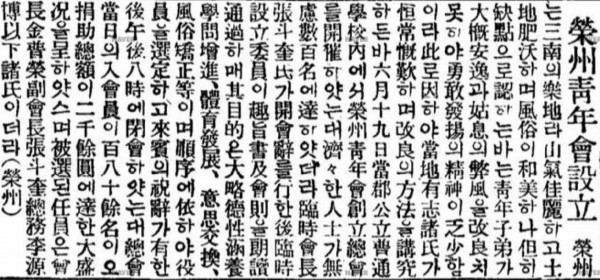 榮州靑年會設立 榮州
는三南의樂地라山氣佳麗하고土
地肥沃하며風俗이和美하나但히
缺點으로認하는바는靑年子弟가
大槪安逸과姑息의弊風을改良치
못하야勇敢發揚의精神이乏少함
이라此로因하야當地有志諸氏가
恒常慨歎하며改良의方法을講究
하든바六月十九日當郡公立普通
學校內에서榮州靑年會創立總會
를開催하얏는대濟々한人士가無
慮數百名에達하얏더라臨時會長
張斗奎氏가開會辭를行한後臨時
設立委員이趣旨書及會則을朗讀
通過하매其目的은大略德性涵養
學問增進、體育發展、意思交換、
風俗矯正等이며順序에依하야役
員을選定하고來賓의祝辭가有한
後午後八時에閉會하얏는대總會
當日의入會員이百八十餘名이오
捐助總額이二千餘圓에達한大盛
況을呈하얏스며被選된任員은會
長金晋榮副會長張斗奎總務李源
博以下諸氏이더라(榮州)